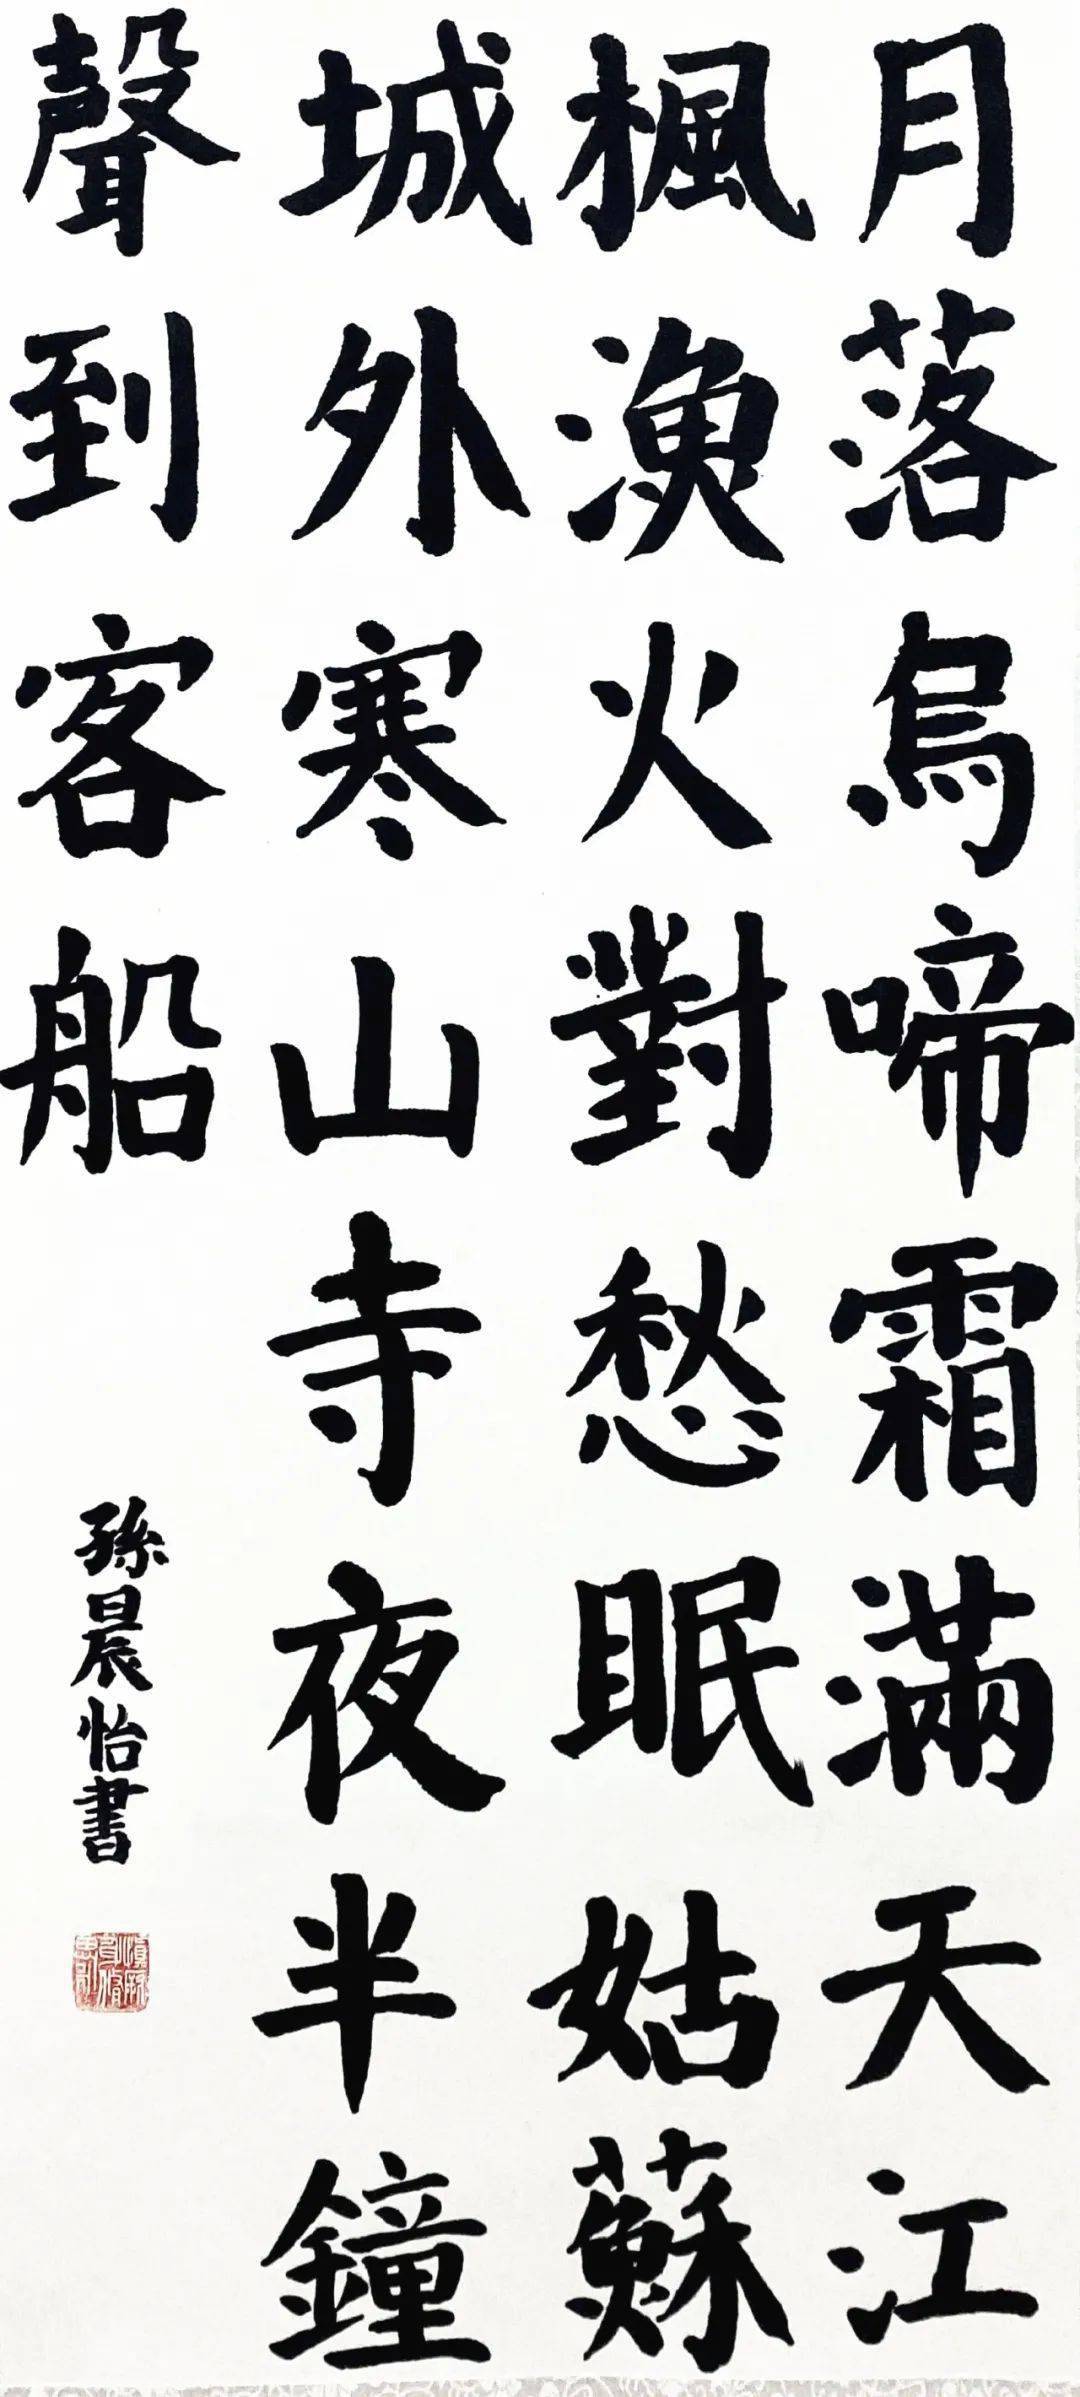 月落烏啼霜滿天江
楓漁火對愁眠姑蘇
城外寒山寺夜半鐘
聲到客船
孫晨怡書